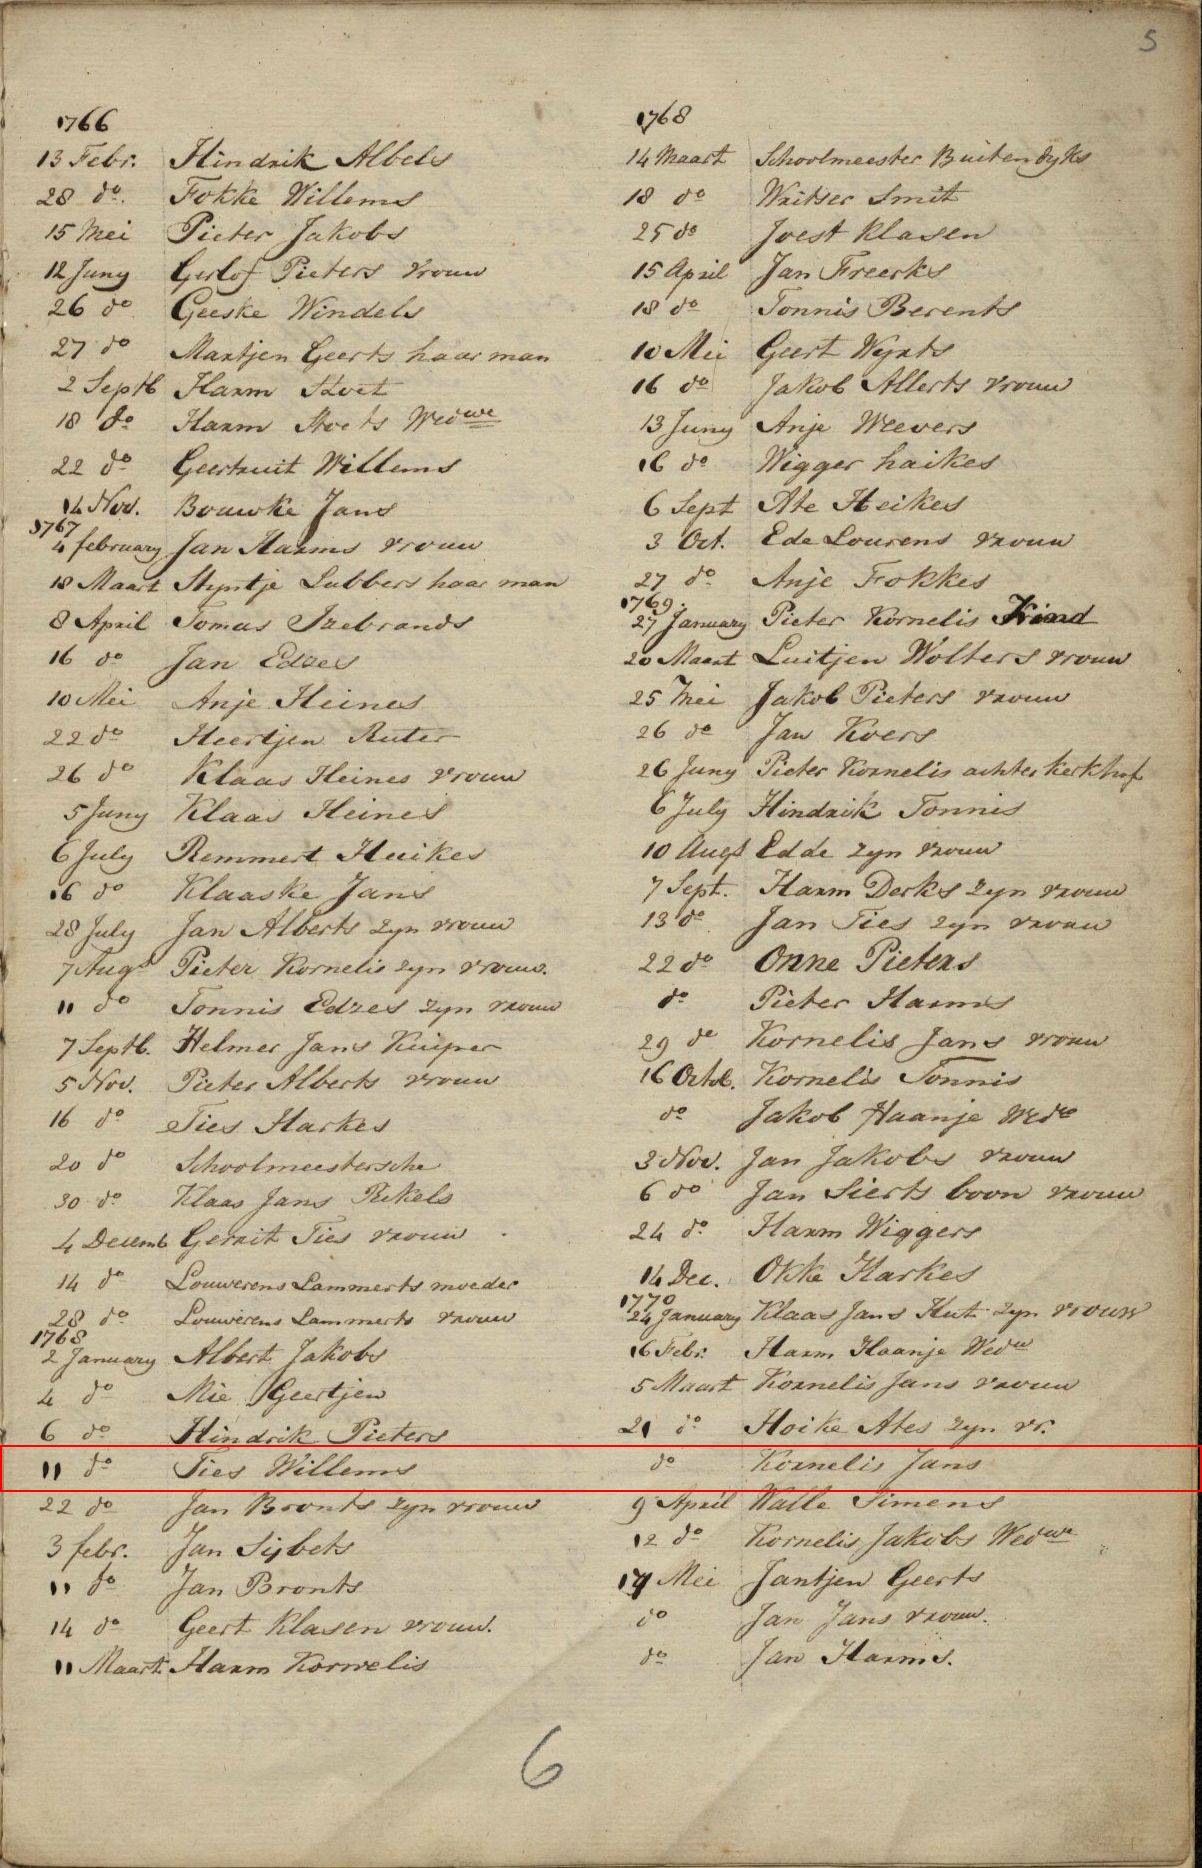 5
1766
13 Febr. Hindrik Albels
28 do. Fokke Willems
15 Mei Pieter Jakobs
12 Juny Gerlof Pieters vrouw
26 do Geeske Windels
27 do Martjen Geerts haar man
2 Septb Harm Stoet
18 do Harm Stoets Wedwe
22 do Geertruit Willems
14 Nov. Bouwke Jans
1767
4 february Jan Harms vrouw
18 Maart Styntje Lubbers haar man
8 April Tomas Izebrands
16 do Jan Edzes
10 Mei Anje Heines
22 do Heertjen Ruter
26 do Klaas Heines vrouw
5 Juny Klaas Heines
6 July Remmert Huikes
16 do Klaaske Jans
28 July Jan Alberts zyn vrouw
7 Augs Pieter Kornelis zyn vrouw.
11 do Tonnis Edzes zyn vrouw
7 Septb. Helmer Jans Kuiper
5 Nov. Pieter Alberts vrouw
16 do Ties Harkes
20 do Schoolmeestersche
30 do Klaas Jans Pekels
4 Decemb Gerrit Ties vrouw
14 do Louwerens Lammerts moeder
28 do Louwerens Lammerts vrouw
1768
2 January Albert Jakobs
4 do Mie Geertjen
6 do Hindrik Pieters
11 do Ties Willems
22 do Jan Bronts zyn vrouw
3 febr. Jan Sijbets
11 do Jan Bronts
14 do Geert Klasen vrouw.
11 Maart Harm Kornelis
1768
14 Maart Schoolmeester Buitendyks
18 do Writser Smit
25 do Joest Klasen
15 April Jan Freerks
18 do Tonnis Berents
10 Mei Geert Wyrts
16 do Jakob Allerts vrouw
13 Juny Anje Weevers
16 do Wigger haikes
6 Sept Ate Heikes
3 Oct. Ede Lourens vrouw
27 do Anje Fokkes
1769.
27 January Pieter Kornelis Kind
20 Maart Luitjen Wolters vrouw
25 Mei Jakob Pieters vrouw
26 do Jan Koers
26 Juny Pieter Kornelis achter kerkhof
6 July Hindrik Tonnis
10 Augs Edde zyn vrouw
7 Sept. Harm Derks zyn vrouw
13 do Jan Ties zyn vrouw
22 do Onne Pieters
do Pieter Harms
29 do Kornelis Jans vrouw
16 Octob. Kornelis Tonnis
do Jakob Haanje Wedw
3 Nov. Jan Jakobs vrouw
6 do Jan Sierts boon vrouw
24 do Harm Wiggers
14 Dec. Okke Harkes
1770
24 January Klaas Jans Hut zyn vrouw
16 Febr. Harm Haanje Wedw
5 Maart Kornelis Jans vrouw
21 do Hoike Ates zyn vr.
do Kornelis Jans
9 April Walle Simens
12 do Kornelis Jakobs Wedwe
14 Mei Jantjen Geerts
do Jan Jans vrouw.
do Jan Harms.
6